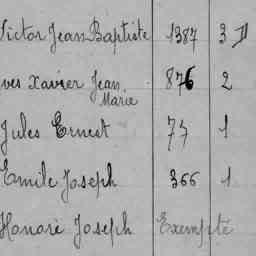 Victor Jean Baptiste 1387 3 D
ves Xavier Jean 876 2
Marie
Jules Ernest 77 1
Emile Joseph 366 1
Honoré Joseph Exempté